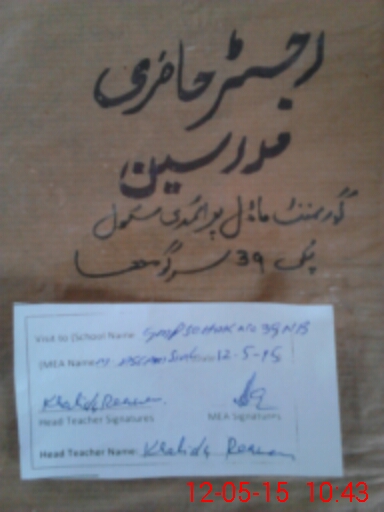 رجسٹر حاضری
مدرسین
گورنمنٹ ماڈل پرائمری سکول
چک 39 سرگودھا
Visit to (School Name: GMPS CHAK NO 39 NB
(MEA Name: Date 12-5-15
Khalida
Head Teacher Signatures MEA Signatures
Head Teacher Name: Khalida
12-05-15 10:43